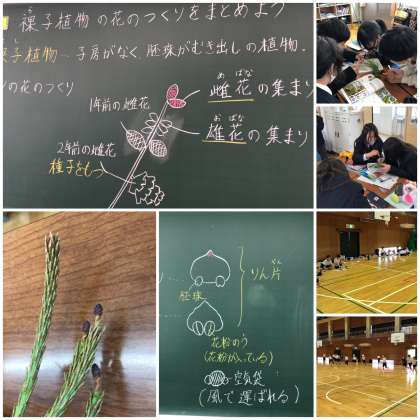 裸子植物の花のつくりをまとめよう
裸子植物…子房がなく、胚珠がむき出しの植物.
の花のつくり
めばな
雌花の集まり
1年前の雌花
おばな
雄花の集まり
2年前の雌花
種子をもつ
りん片
胚珠
花粉のう
(花粉が入っている)
空気袋
(風で運ばれる)